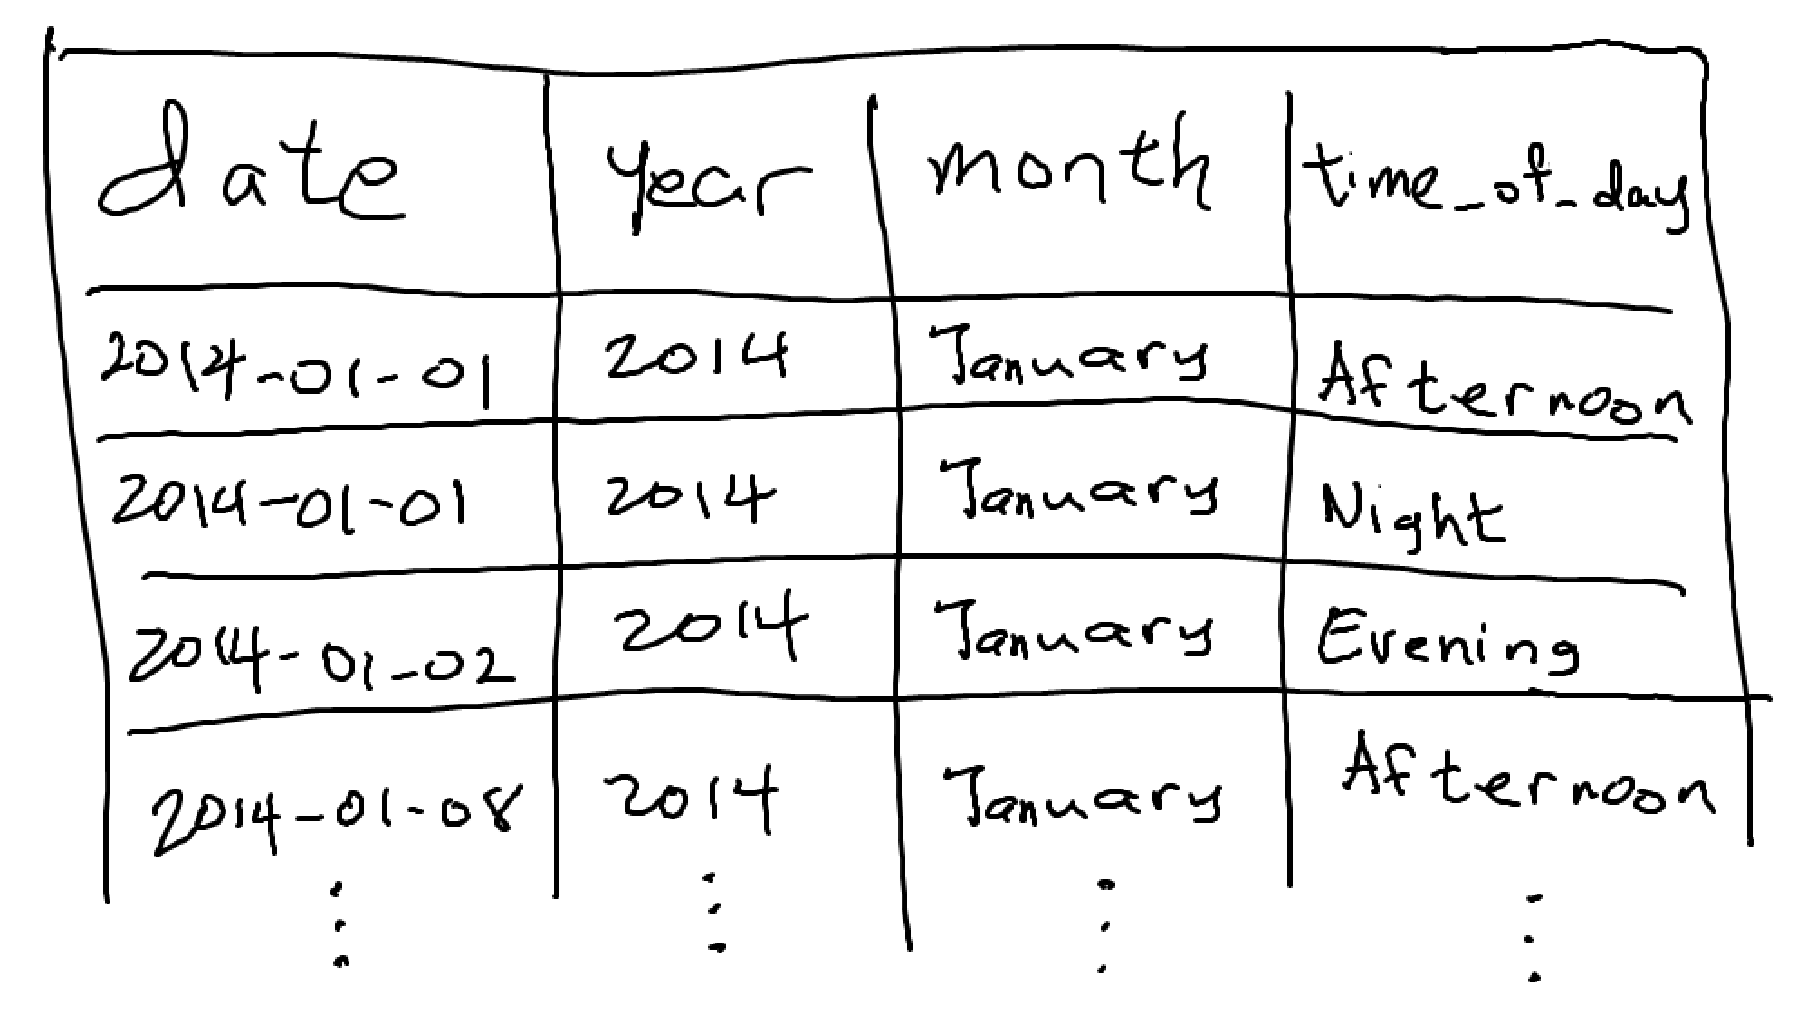 date year month time_of_day
2014-01-01 2014 January Afternoon
2014-01-01 2014 January Night
2014-01-02 2014 January Evening
2014-01-08 2014 January Afternoon